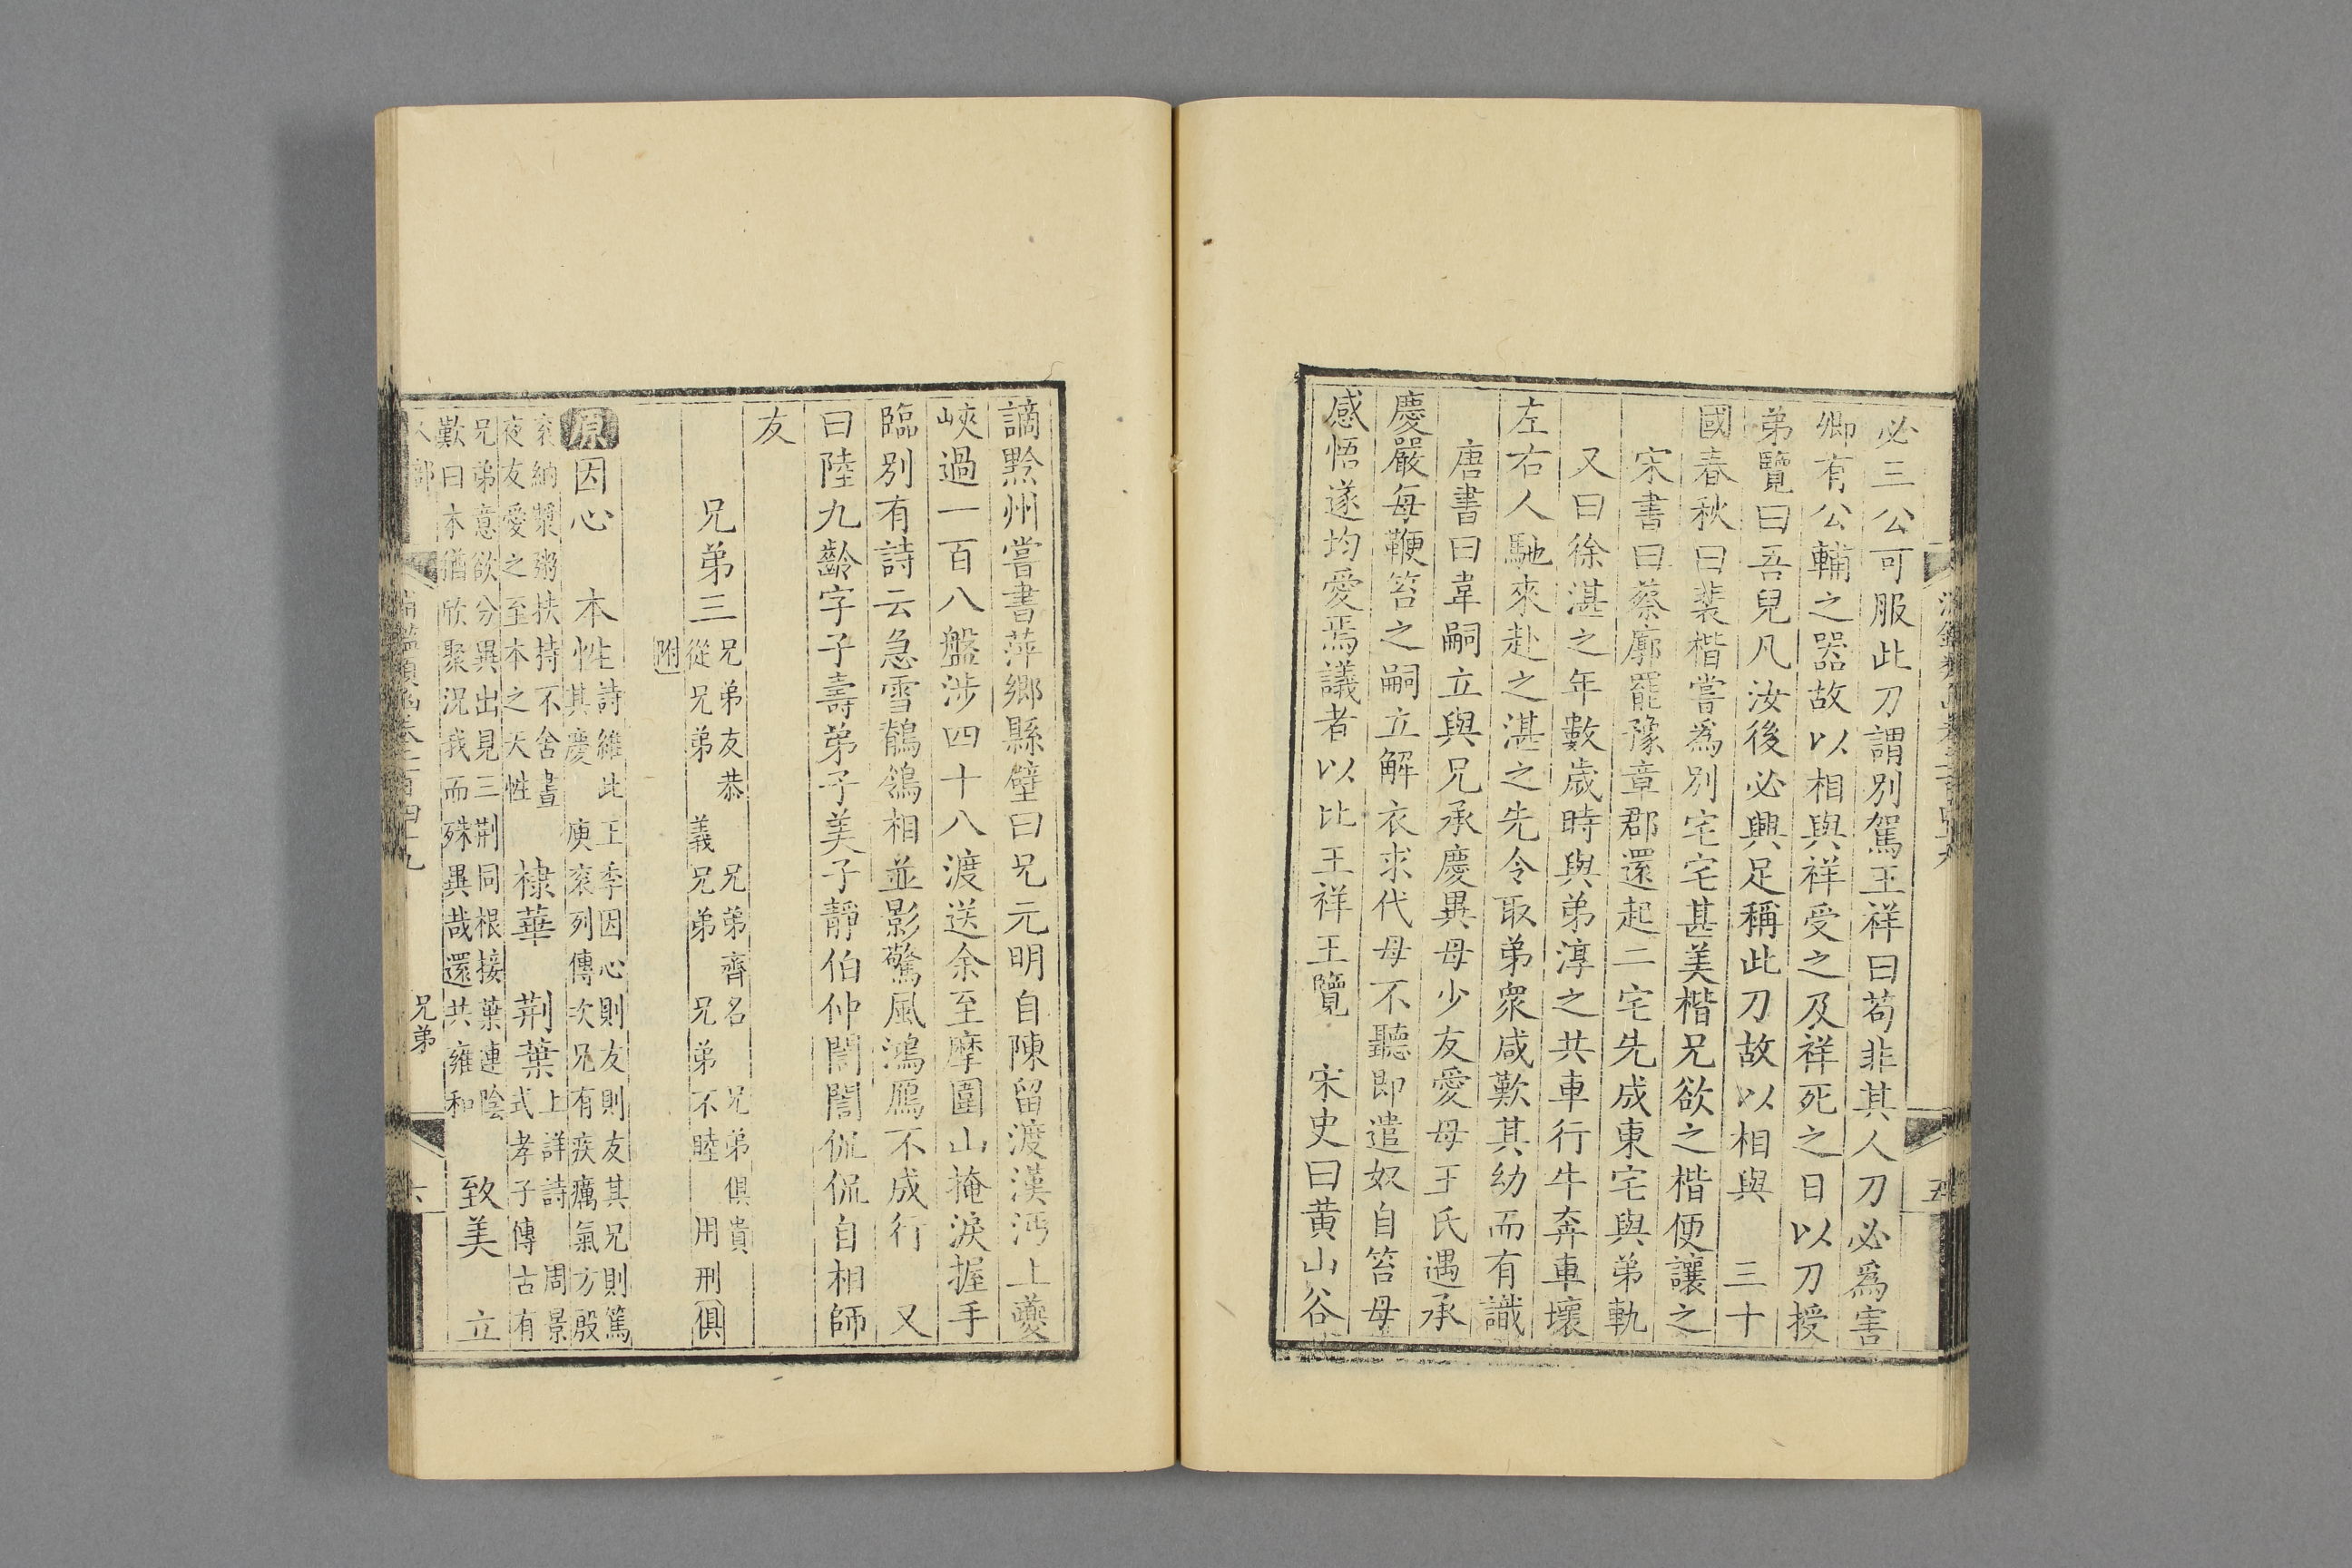 必三公可服此刀謂別駕王祥曰苟非其人刀必爲害
卿有公輔之器故以相與祥受之及祥死之日以刀授
弟覽曰吾兒凡汝後必興足稱此刀故以相與　三十
國春秋曰裴楷嘗爲別宅宅甚美楷兄欲之楷便讓之
宋書曰蔡廓罷豫章郡還起二宅先成東宅與弟軌
又曰徐湛之年數歲時與弟淳之共車行牛奔車壞
左右人馳來赴之湛之先令取弟衆咸歎其幼而有識
唐書曰韋嗣立與兄承慶異母少友愛母王氏遇承
慶嚴每鞭笞之嗣立解衣求代母不聽即遣奴自笞母
感悟遂均愛焉議者以比王祥王覽　宋史曰黄山谷
謫黔州嘗書萍鄉縣壁曰兄元明自陳留渡漢沔上夔
峽過一百八盤涉四十八渡送余至摩圍山掩淚握手
臨別有詩云急雪鶺鴒相並影驚風鴻鴈不成行　又
曰陸九齡字子壽弟子美子靜伯仲誾誾侃侃自相師
友
兄弟三
兄弟友恭　兄弟齊名　兄弟俱貴
從兄弟　義兄弟　兄弟不睦　用刑俱
附
原因心　本性
詩維此王季因心則友則友其兄則篤
其慶　庾衮列傳次兄有疾癘氣方殷
衮納漿粥扶持不舍晝
夜友愛之至本之天性
棣華　荆葉
上詳詩　周景
式孝子傳古有
兄弟意欲分異出見三荆同根接葉連陰
歎曰木猶欣聚況我而殊異哉還共雍和
致美　立
人部
淵鑑類函卷二百四十九
兄弟
六